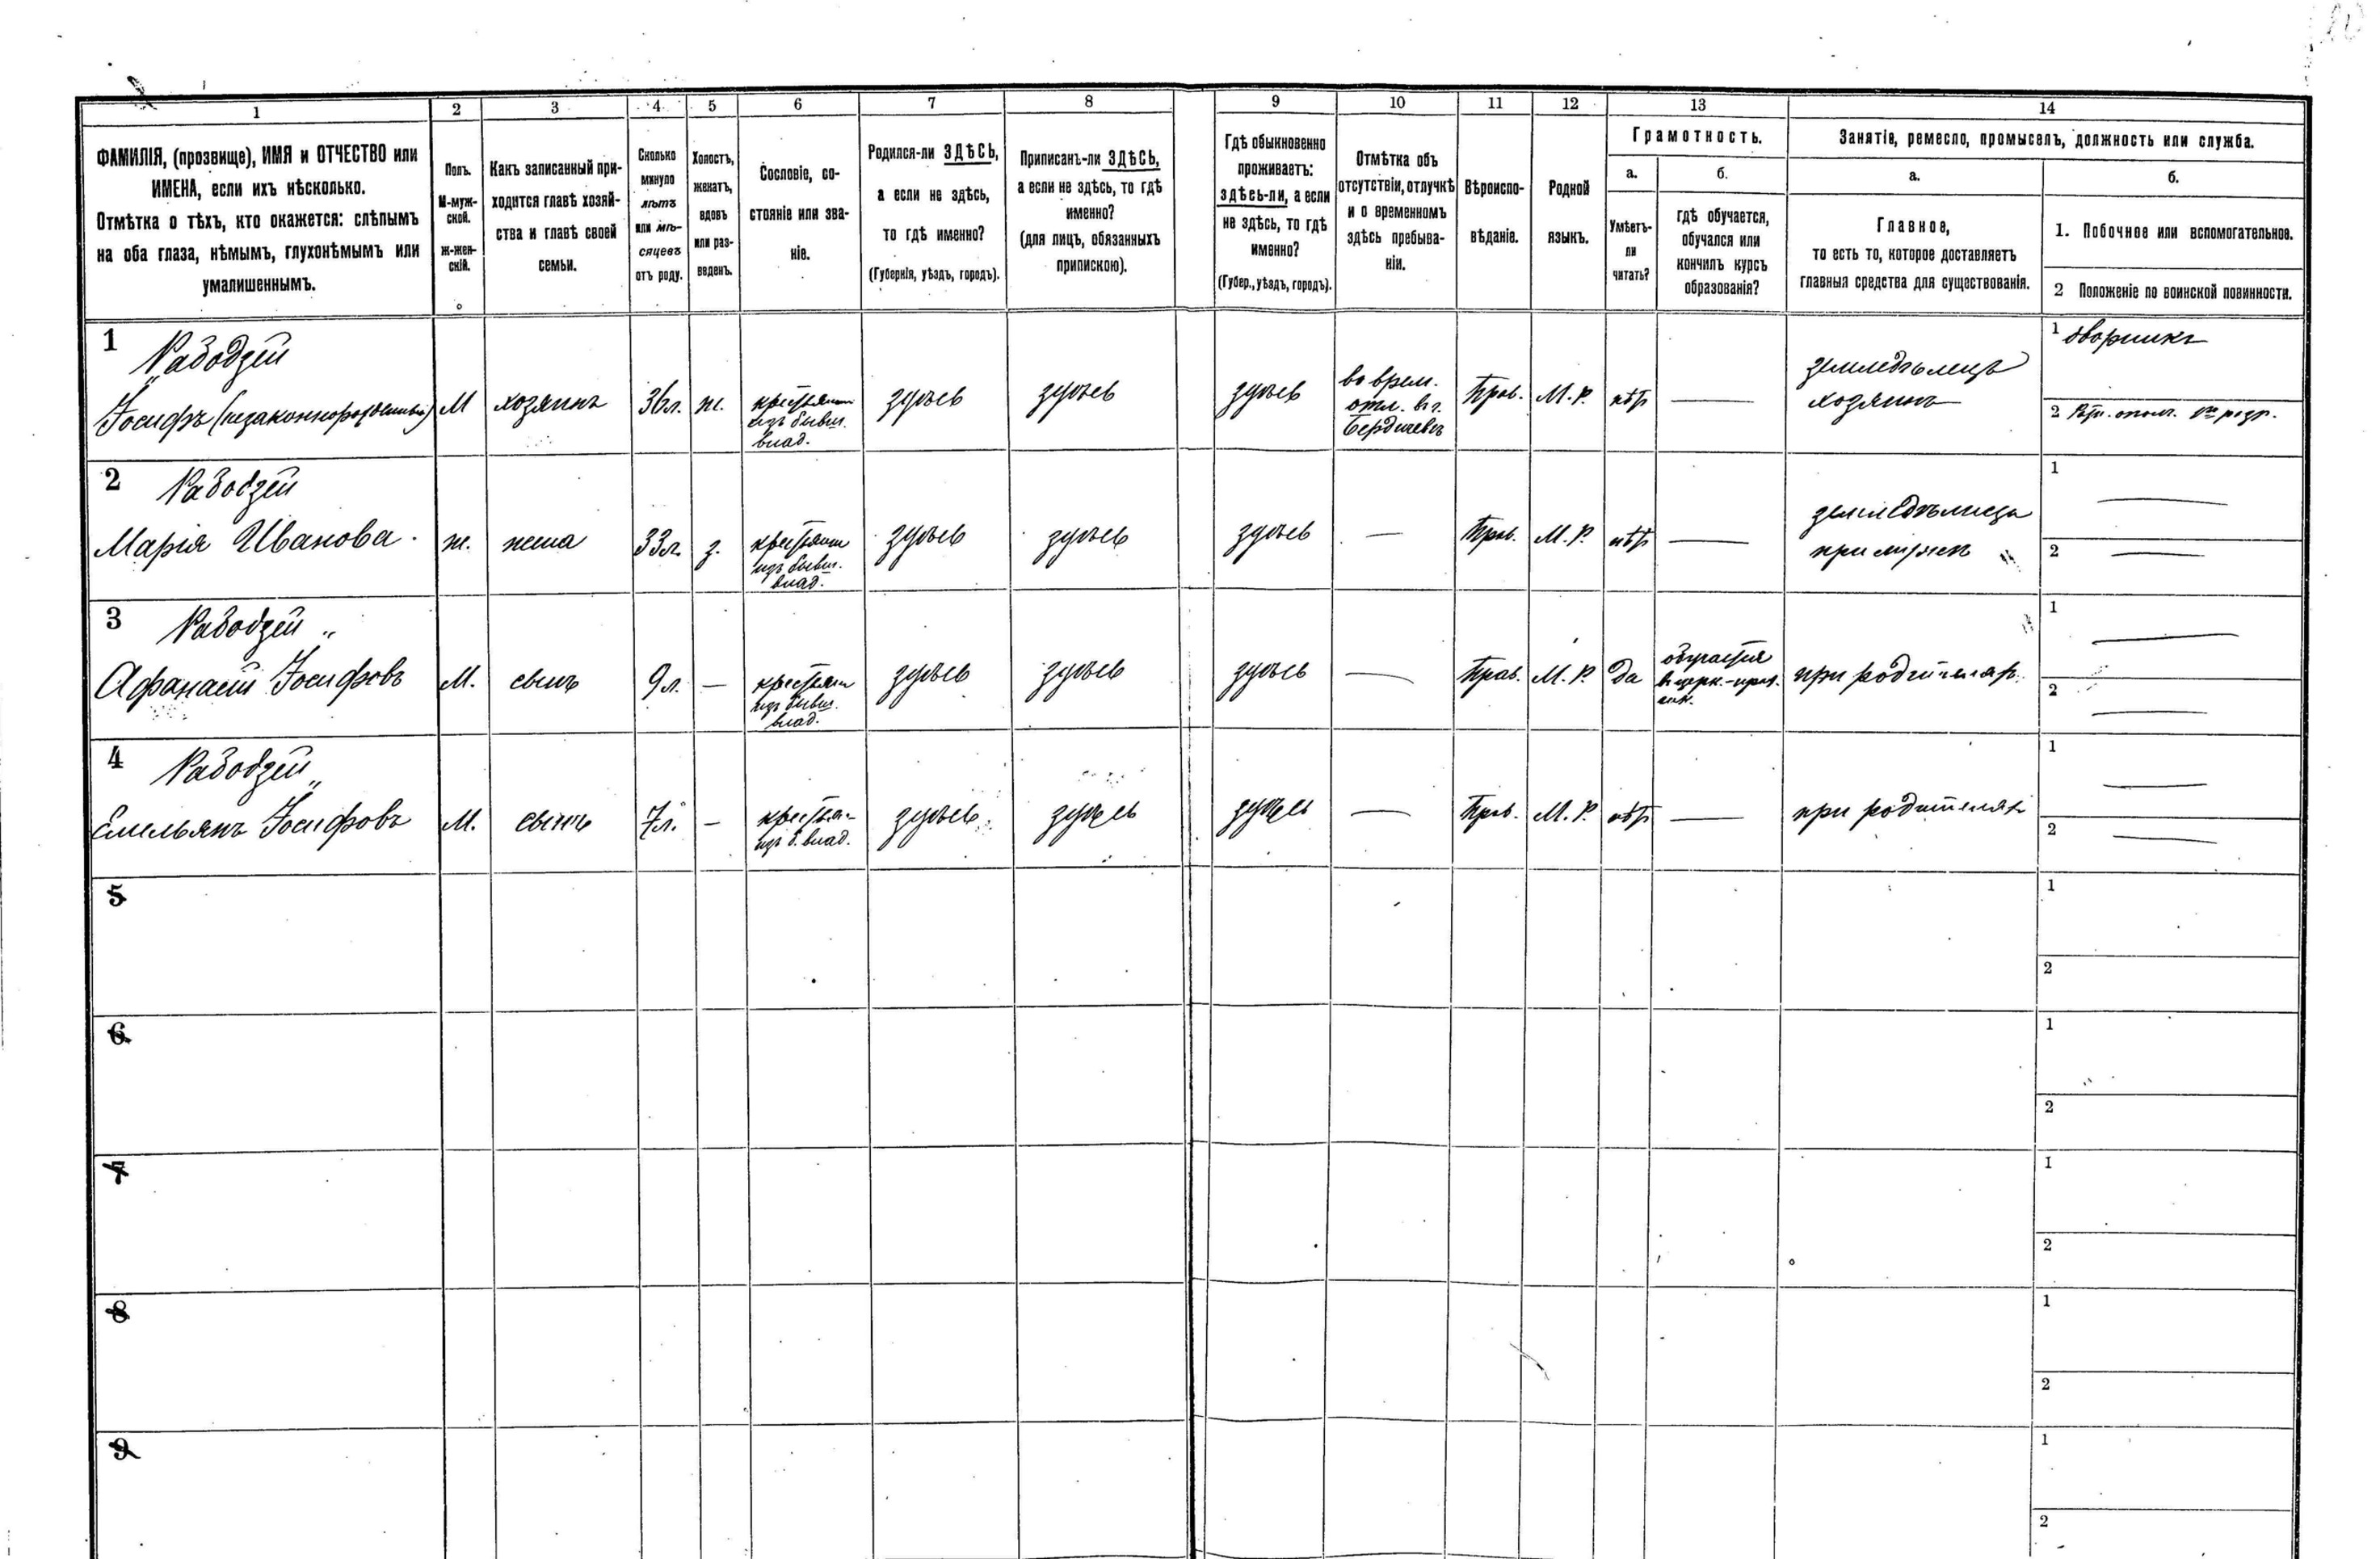 1 2 3 4 5 6 7 8 9 10 11 12 13 14
ФАМИЛІЯ, (прозвище), ИМЯ и ОТЧЕСТВО или
ИМЕНА, если ихъ нѣсколько.
Отмѣтка о тѣхъ, кто окажется: слѣпымъ
на оба глаза, нѣмымъ, глухонѣмымъ или
умалишеннымъ.
Полъ.
М-муж-
ской.
ж-жен-
скій.
Какъ записанный при-
ходится главѣ хозяй-
ства и главѣ своей
семьи.
Сколько
минуло
лѣтъ
или мѣ-
сяцевъ
отъ роду.
Холостъ,
женатъ,
вдовъ
или раз-
веденъ.
Сословіе, со-
стояніе или зва-
ніе.
Родился-ли ЗДѢСЬ,
а если не здѣсь,
то гдѣ именно?
(Губернія, уѣздъ, городъ).
Приписанъ-ли ЗДѢСЬ,
а если не здѣсь, то гдѣ
именно?
(для лицъ, обязанныхъ
припискою).
Гдѣ обыкновенно
проживаетъ:
здѣсь-ли, а если
не здѣсь, то гдѣ
именно?
(Губер., уѣздъ, городъ).
Отмѣтка объ
отсутствіи, отлучкѣ
и о временномъ
здѣсь пребыва-
ніи.
Вѣроиспо-
вѣданіе.
Родной
языкъ.
Грамотность.
а.
Умѣетъ-
ли
читать?
б.
гдѣ обучается,
обучался или
кончилъ курсъ
образованія?
Занятіе, ремесло, промыселъ, должность или служба.
а.
Главное,
то есть то, которое доставляетъ
главныя средства для существованія.
б.
1. Побочное или вспомогательное.
2 Положеніе по воинской повинности.
1
Рабодзей
Іосифъ (незаконнорожденный)
М
хозяинъ
36 л.
ж.
крестьянинъ
изъ бывш.
влад.
здѣсь
здѣсь
здѣсь
во врем.
отл. въ г.
Бердичевъ
Прав.
М. Р.
нѣтъ
—
земледѣлецъ
хозяинъ
1 дворникъ
2 Ратн. опол. разр.
2
Рабодзей
Марія Иванова.
ж.
жена
33 л.
з.
крестьян
изъ бывш.
влад.
здѣсь
здѣсь
здѣсь
—
Прав.
М. Р.
нѣтъ
—
земледѣлица
при мужѣ
1 —
2 —
3
Рабодзей
Афанасій Іосифовъ
М.
сынъ
9 л.
—
крестьян
изъ бывш.
влад.
здѣсь
здѣсь
здѣсь
—
Прав.
М. Р.
да
обучается
въ церк.-прих.
шк.
при родителяхъ
1 —
2 —
4
Рабодзей
Емельянъ Іосифовъ
М.
сынъ
7 л.
—
крестьян
изъ б. влад.
здѣсь
здѣсь
здѣсь
—
Прав.
М. Р.
нѣтъ
—
при родителяхъ
1 —
2 —
5
1
2
6
1
2
7
1
2
8
1
2
9
1
2